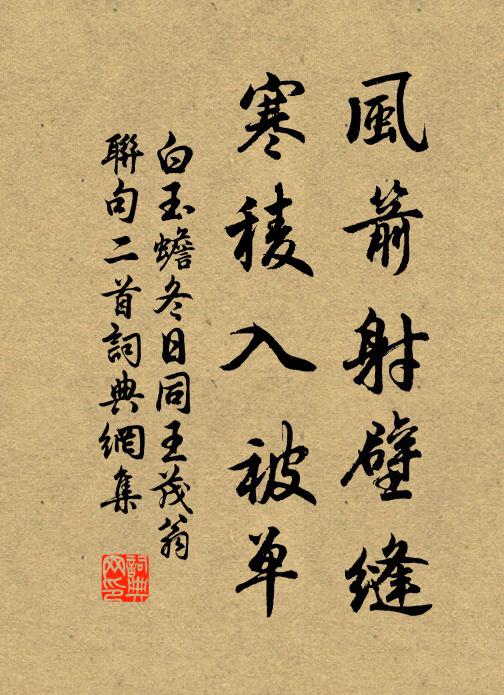 風箭射壁縫
寒稜入被单
白玉蟾冬日同王茂翁
聯句二首詞典網集
詞典网印